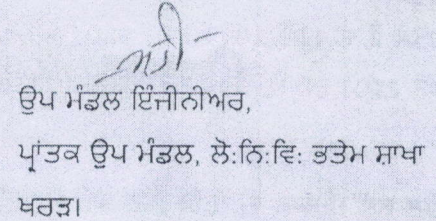 ਉਪ ਮੰਡਲ ਇੰਜੀਨੀਅਰ,
ਪ੍ਰਾਂਤਕ ਉਪ ਮੰਡਲ, ਲੋ:ਨਿ:ਵਿ: ਭਤੇਮ ਸ਼ਾਖਾ
ਖਰੜ।